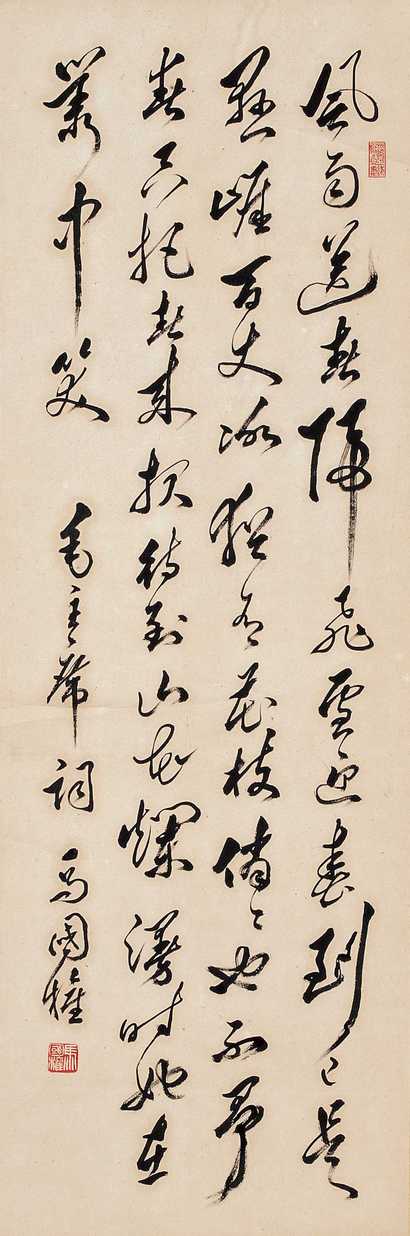 風雨送春歸飛雪迎春到已是
懸崖百丈冰猶有花枝俏〻也不爭
春只把春來報待到山花爛漫時她在
叢中笑 毛主席詞 馬國權